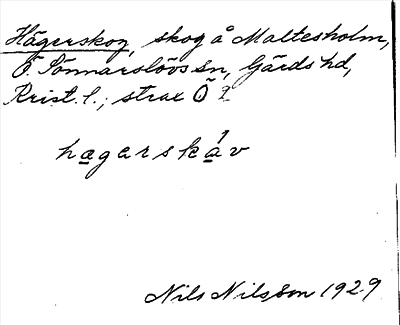 Hägerskog, skog å Maltesholm,
Ö. Sönnarslövs sn, Gärds hd,
Krist. l.; strax Ö
hagarskáv
Nils Nilsson 1929